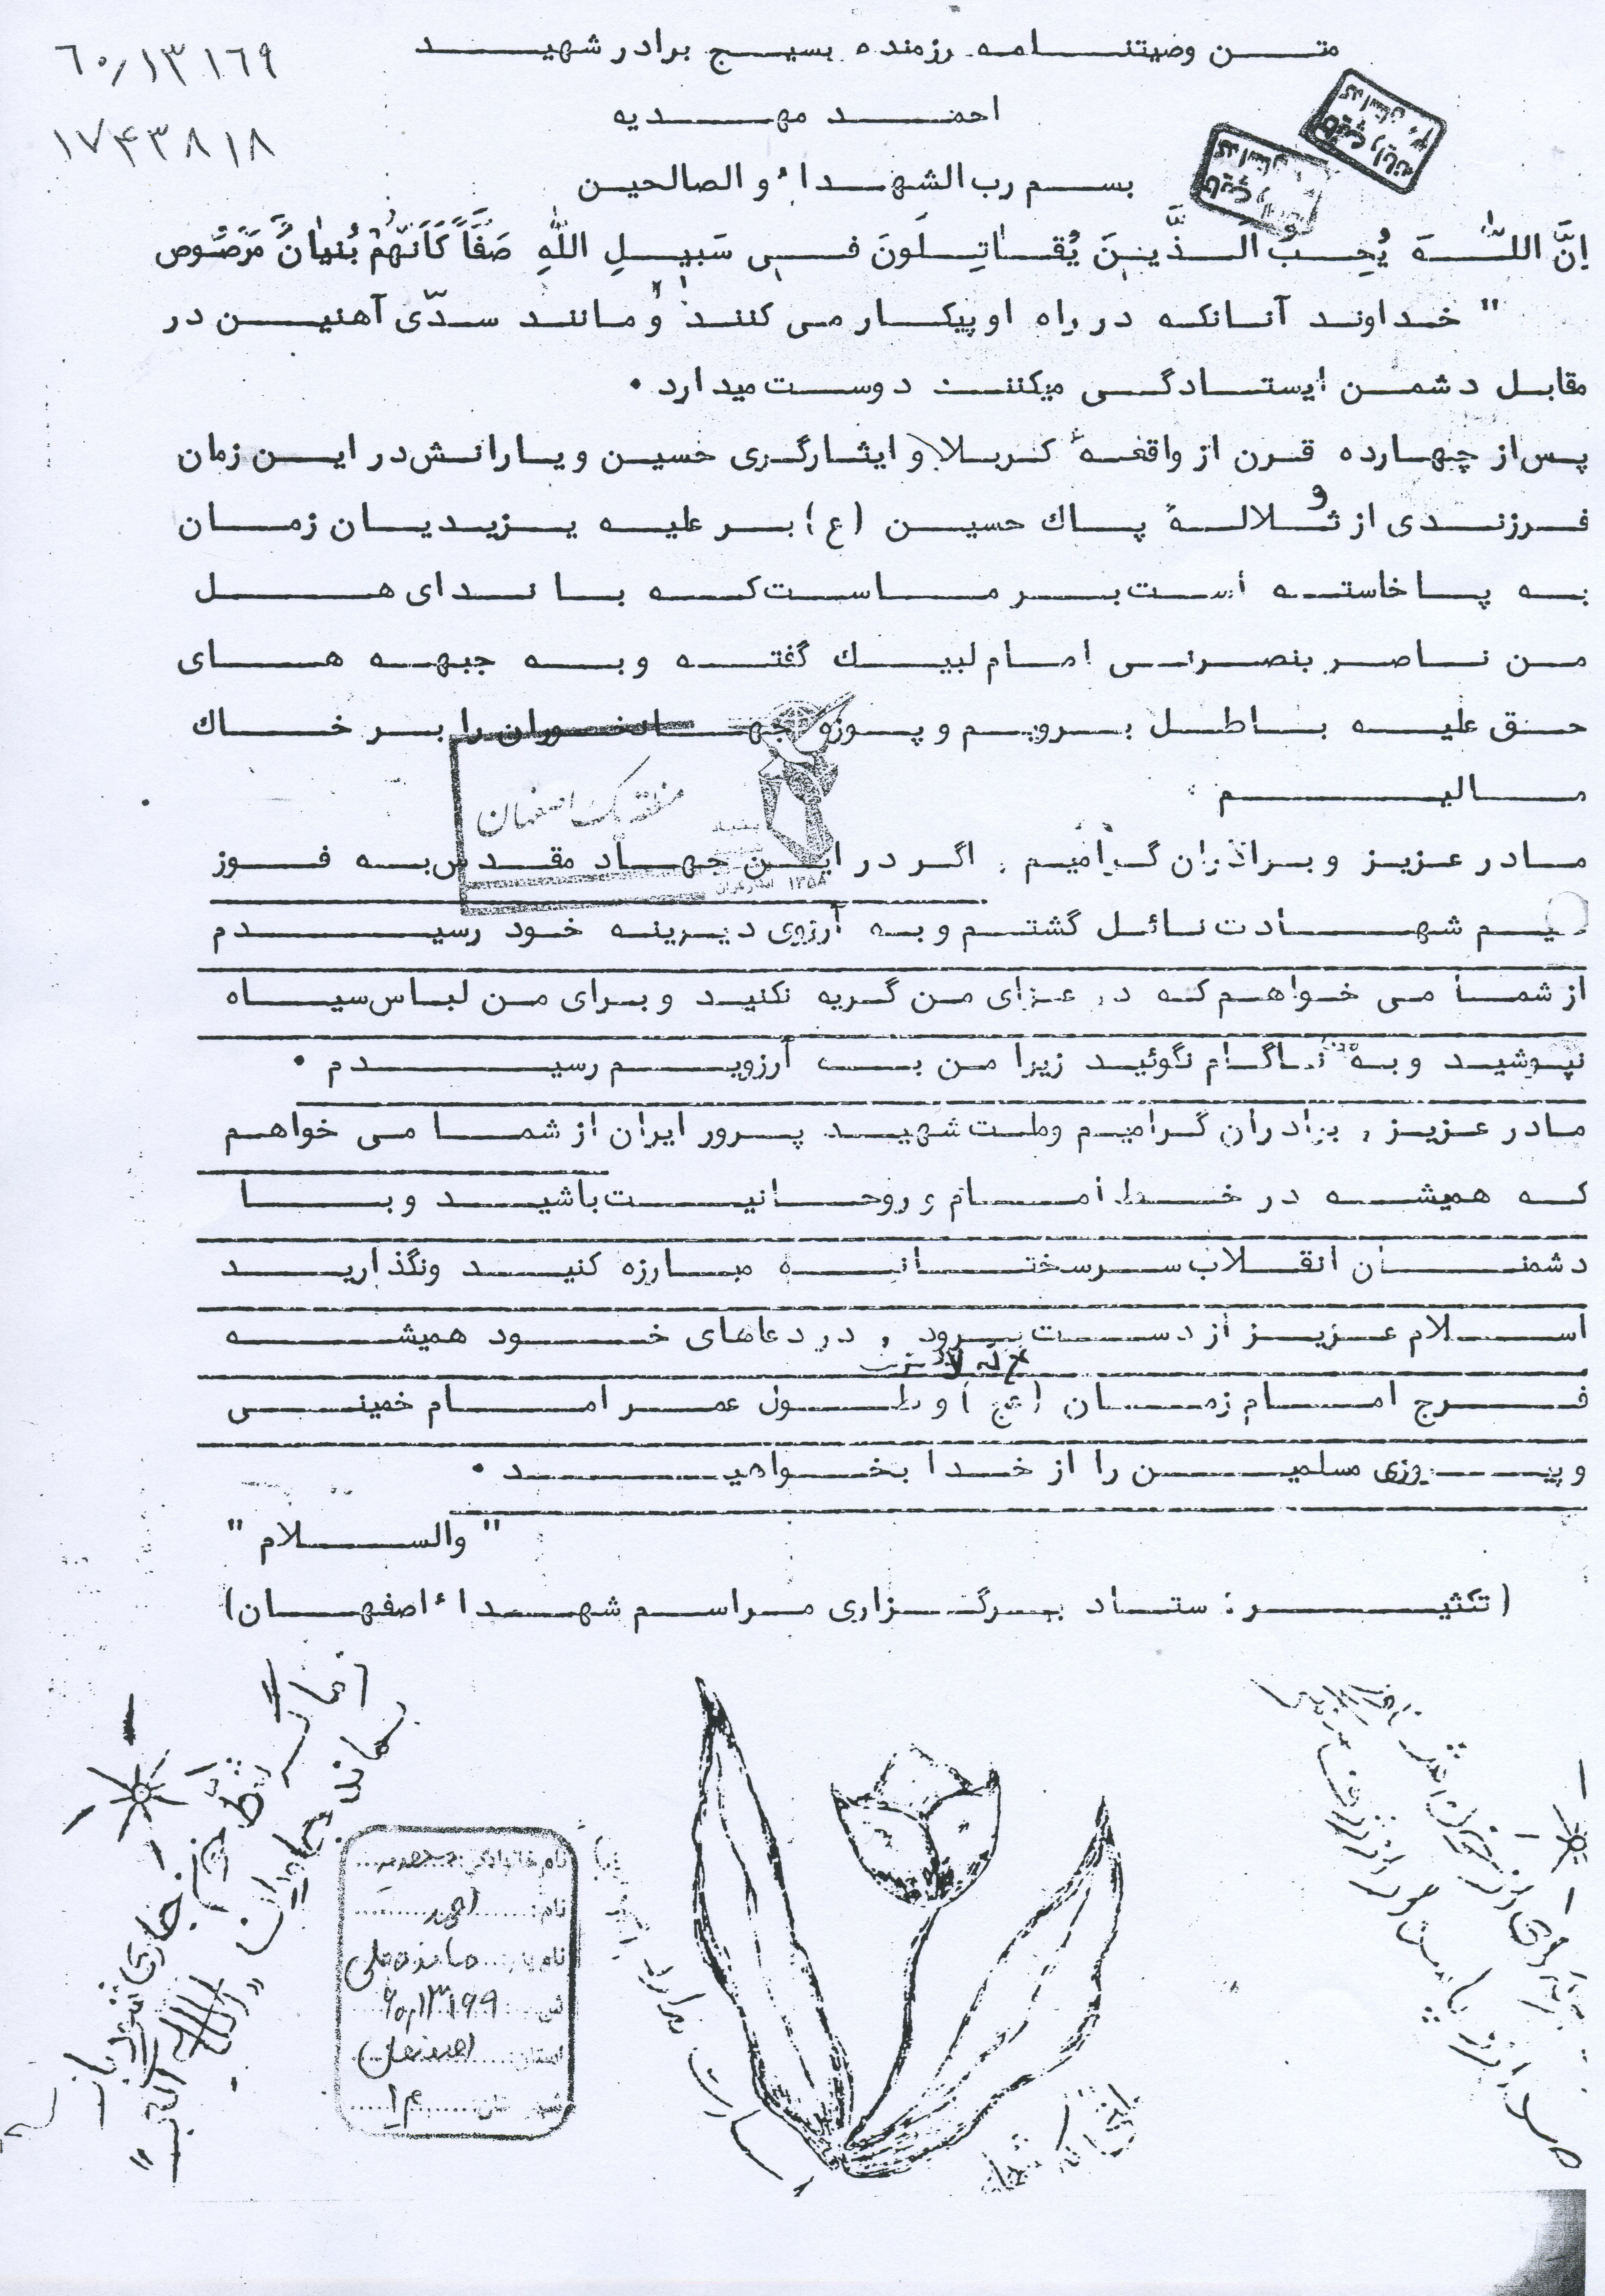 متن وصیتنامه رزمنده بسیج برادر شهید
٦٠/١٣١٦٩
احمد مهدیه
١٧۴٣٨١٨
بسم رب الشهداء و الصالحین
اِنَّ اللّٰهَ یُحِبُّ الَّذَّینَ یُقٰاتِلُونَ فی سَبیلِ اللّٰهِ صَفَّاً کَاَنَّهُمْ بُنیٰانٌ مَرْصُوص
" خداوند آنانکه در راه او پیکار می کنند و مانند سدّی آهنین در
مقابل دشمن ایستادگی میکنند دوست میدارد .
پس از چهارده قرن از واقعهٔ کربلا و ایثارگری حسین و یارانش در این زمان
فرزندی از ثلالهٔ پاك حسین (ع) بر علیه یزیدیان زمان
به پا خاسته است بر ماست که با ندای هل
من ناصر ینصرنی امام لبیك گفته و به جبهه های
حق علیه باطل برویم و پوزه جهانخوران را بر خاك
مالیم .
منطقه یک اصفهان
١٣۵٨
مادر عزیز و برادران گرامیم . اگر در این جهاد مقدس به فوز
شهادت نائل گشتم و به آرزوی دیرینه خود رسیدم
از شما می خواهم که در عزای من گریه نکنید و برای من لباس سیاه
نپوشید و به من ناکام نگوئید زیرا من به آرزویم رسیدم .
مادر عزیز , برادران گرامیم وملت شهید پرور ایران از شما می خواهم
که همیشه در خط امام و روحانیت باشید و با
دشمنان انقلاب سرسختانه مبارزه کنید ونگذارید
اسلام عزیز از دست برود , در دعاهای خود همیشه
فرج امام زمان (عج) و طول عمر امام خمینی
و پیروزی مسلمین را از خدا بخواهید .
" والسلام "
(تکثیر : ستاد برگزاری مراسم شهداء اصفهان)
نام خانوادگی: مهدیه
نام: احمد
نام پدر:
ش ٦٠/١٣١٦٩
استان: اصفهان